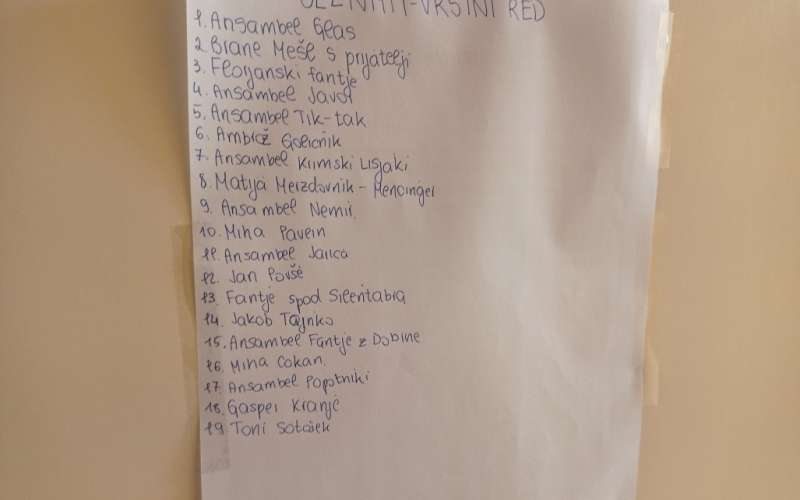 VRSTNI RED
1. Ansambel Glas
2. Brane Mešl s prijatelji
3. Florjanski fantje
4. Ansambel Javor
5. Ansambel Tik-tak
6. Ambrož Goličnik
7. Ansambel Krimski Lisjaki
8. Matija Merzdovnik - Mencinger
9. Ansambel Nemir
10. Miha Pavein
11. Ansambel Jarica
12. Jan Povše
13. Fantje spod Silentabra
14. Jakob Tajnko
15. Ansambel Fantje z Dobine
16. Miha Cokan
17. Ansambel Popotniki
18. Gasper Kranjc
19. Toni Sotošek